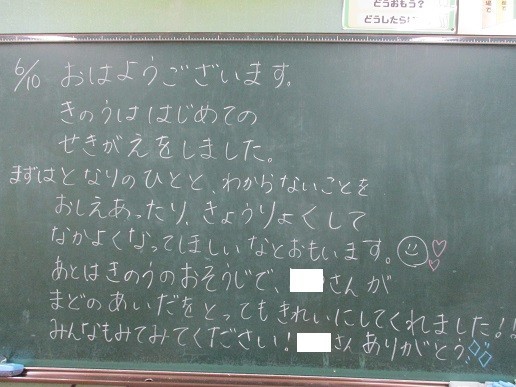 どうおもう?
どうしたら!?
6/10 おはようございます。
きのうは はじめての
せきがえをしました。
まずは となりのひとと、わからないことを
おしえあったり、きょうりょくして
なかよくなってほしいなとおもいます。
あとはきのうのおそうじで、 さんが
まどのあいだをとってもきれいにしてくれました!!
みんなもみてみてください! さんありがとう、